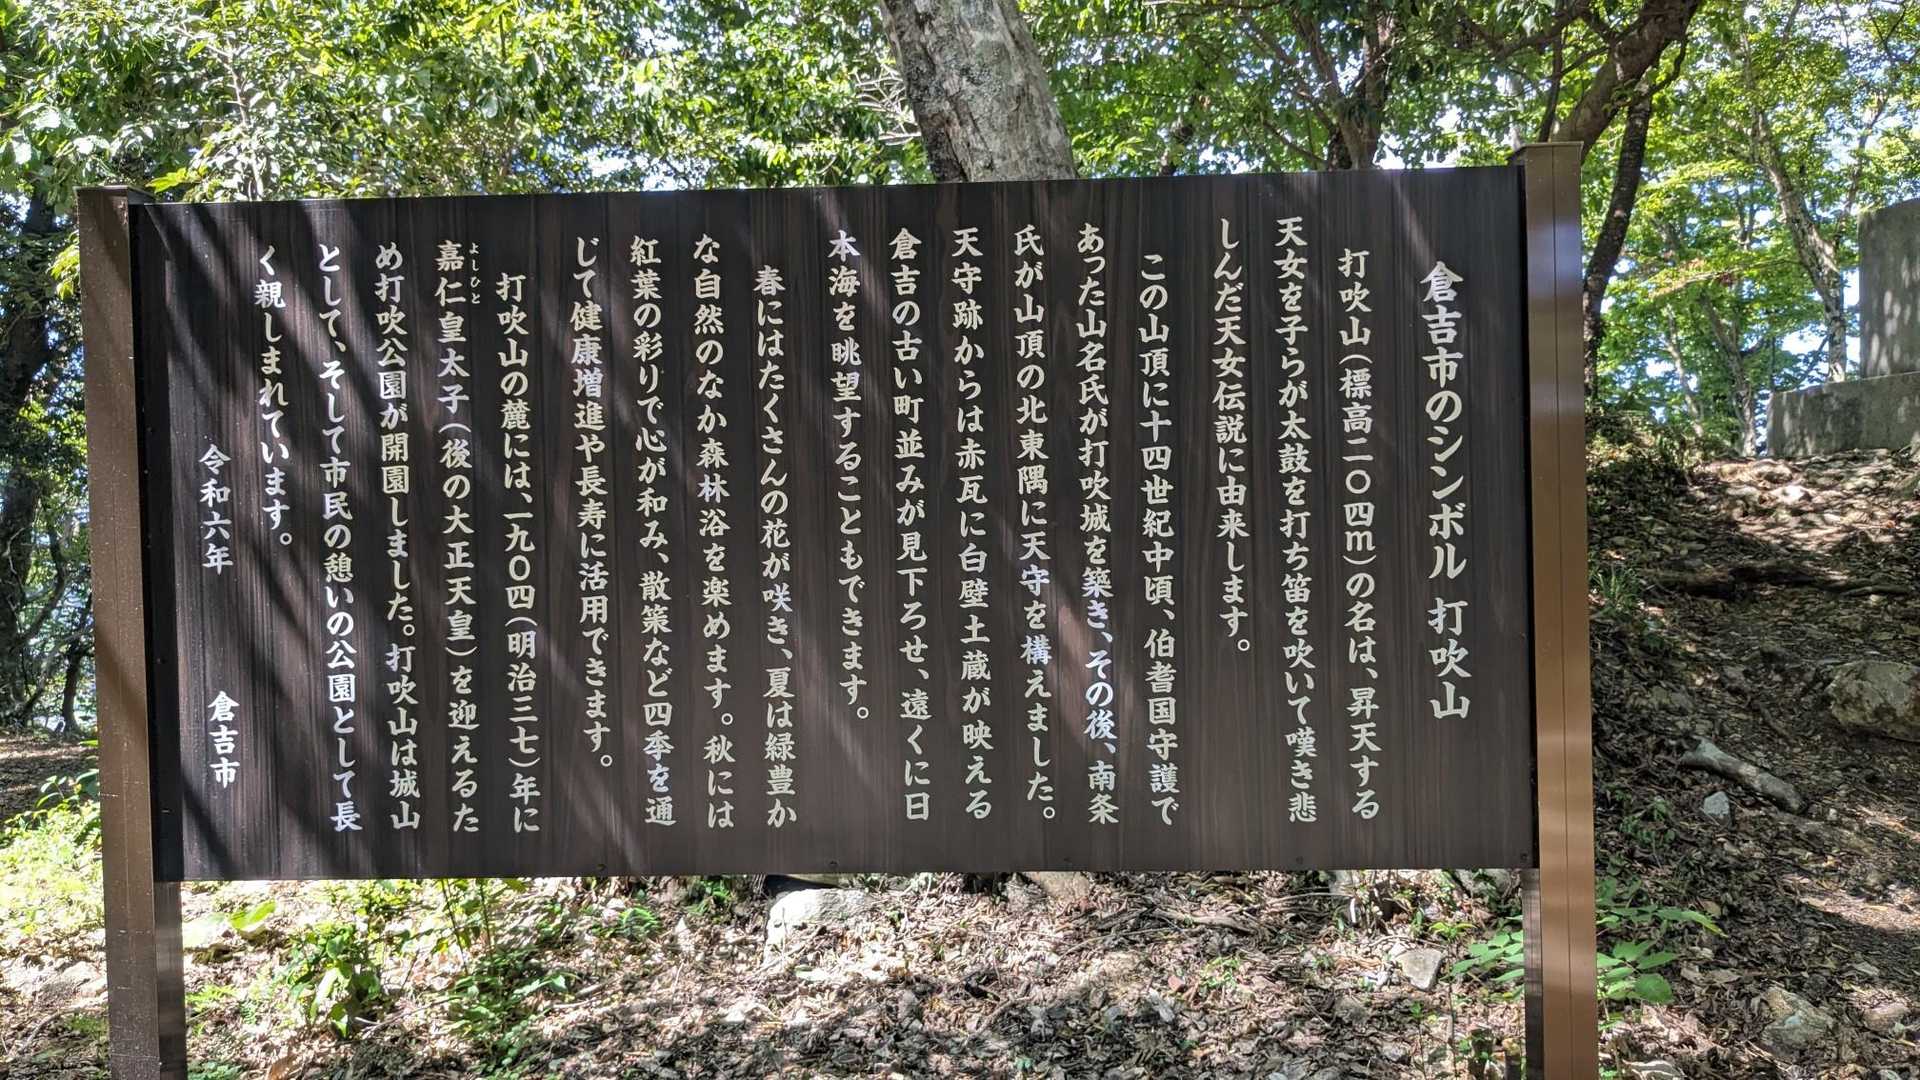 倉吉市のシンボル 打吹山
打吹山(標高二〇四m)の名は、昇天する
天女を子らが太鼓を打ち笛を吹いて嘆き悲
しんだ天女伝説に由来します。
この山頂に十四世紀中頃、伯耆国守護で
あった山名氏が打吹城を築き、その後、南条
氏が山頂の北東隅に天守を構えました。
天守跡からは赤瓦に白壁土蔵が映える
倉吉の古い町並みが見下ろせ、遠くに日
本海を眺望することもできます。
春にはたくさんの花が咲き、夏は緑豊か
な自然のなか森林浴を楽めます。秋には
紅葉の彩りで心が和み、散策など四季を通
じて健康増進や長寿に活用できます。
打吹山の麓には、一九〇四(明治三七)年に
よしひと
嘉仁皇太子(後の大正天皇)を迎えるた
め打吹公園が開園しました。打吹山は城山
として、そして市民の憩いの公園として長
く親しまれています。
令和六年 倉吉市